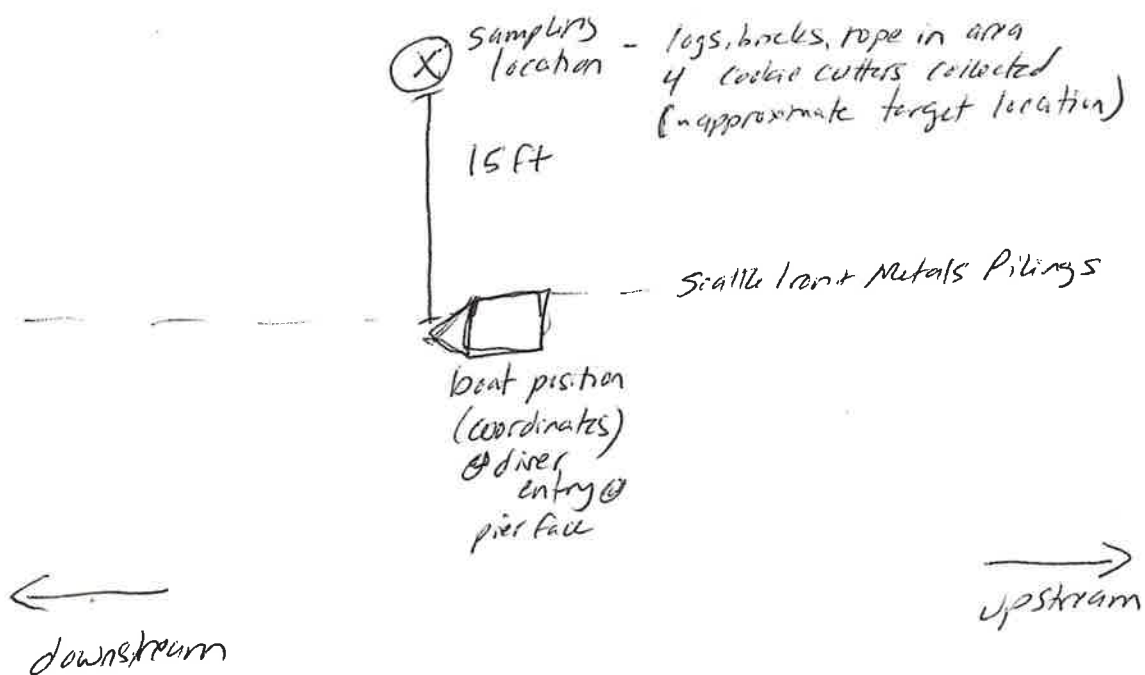 sampling
location - logs, bricks, rope in area
4 cookie cutters collected
(in approximate target location)
X
15 ft
Seattle Iron + Metals Pilings
boat position
(coordinates)
@ diver
entry @
pier face
upstream
downstream